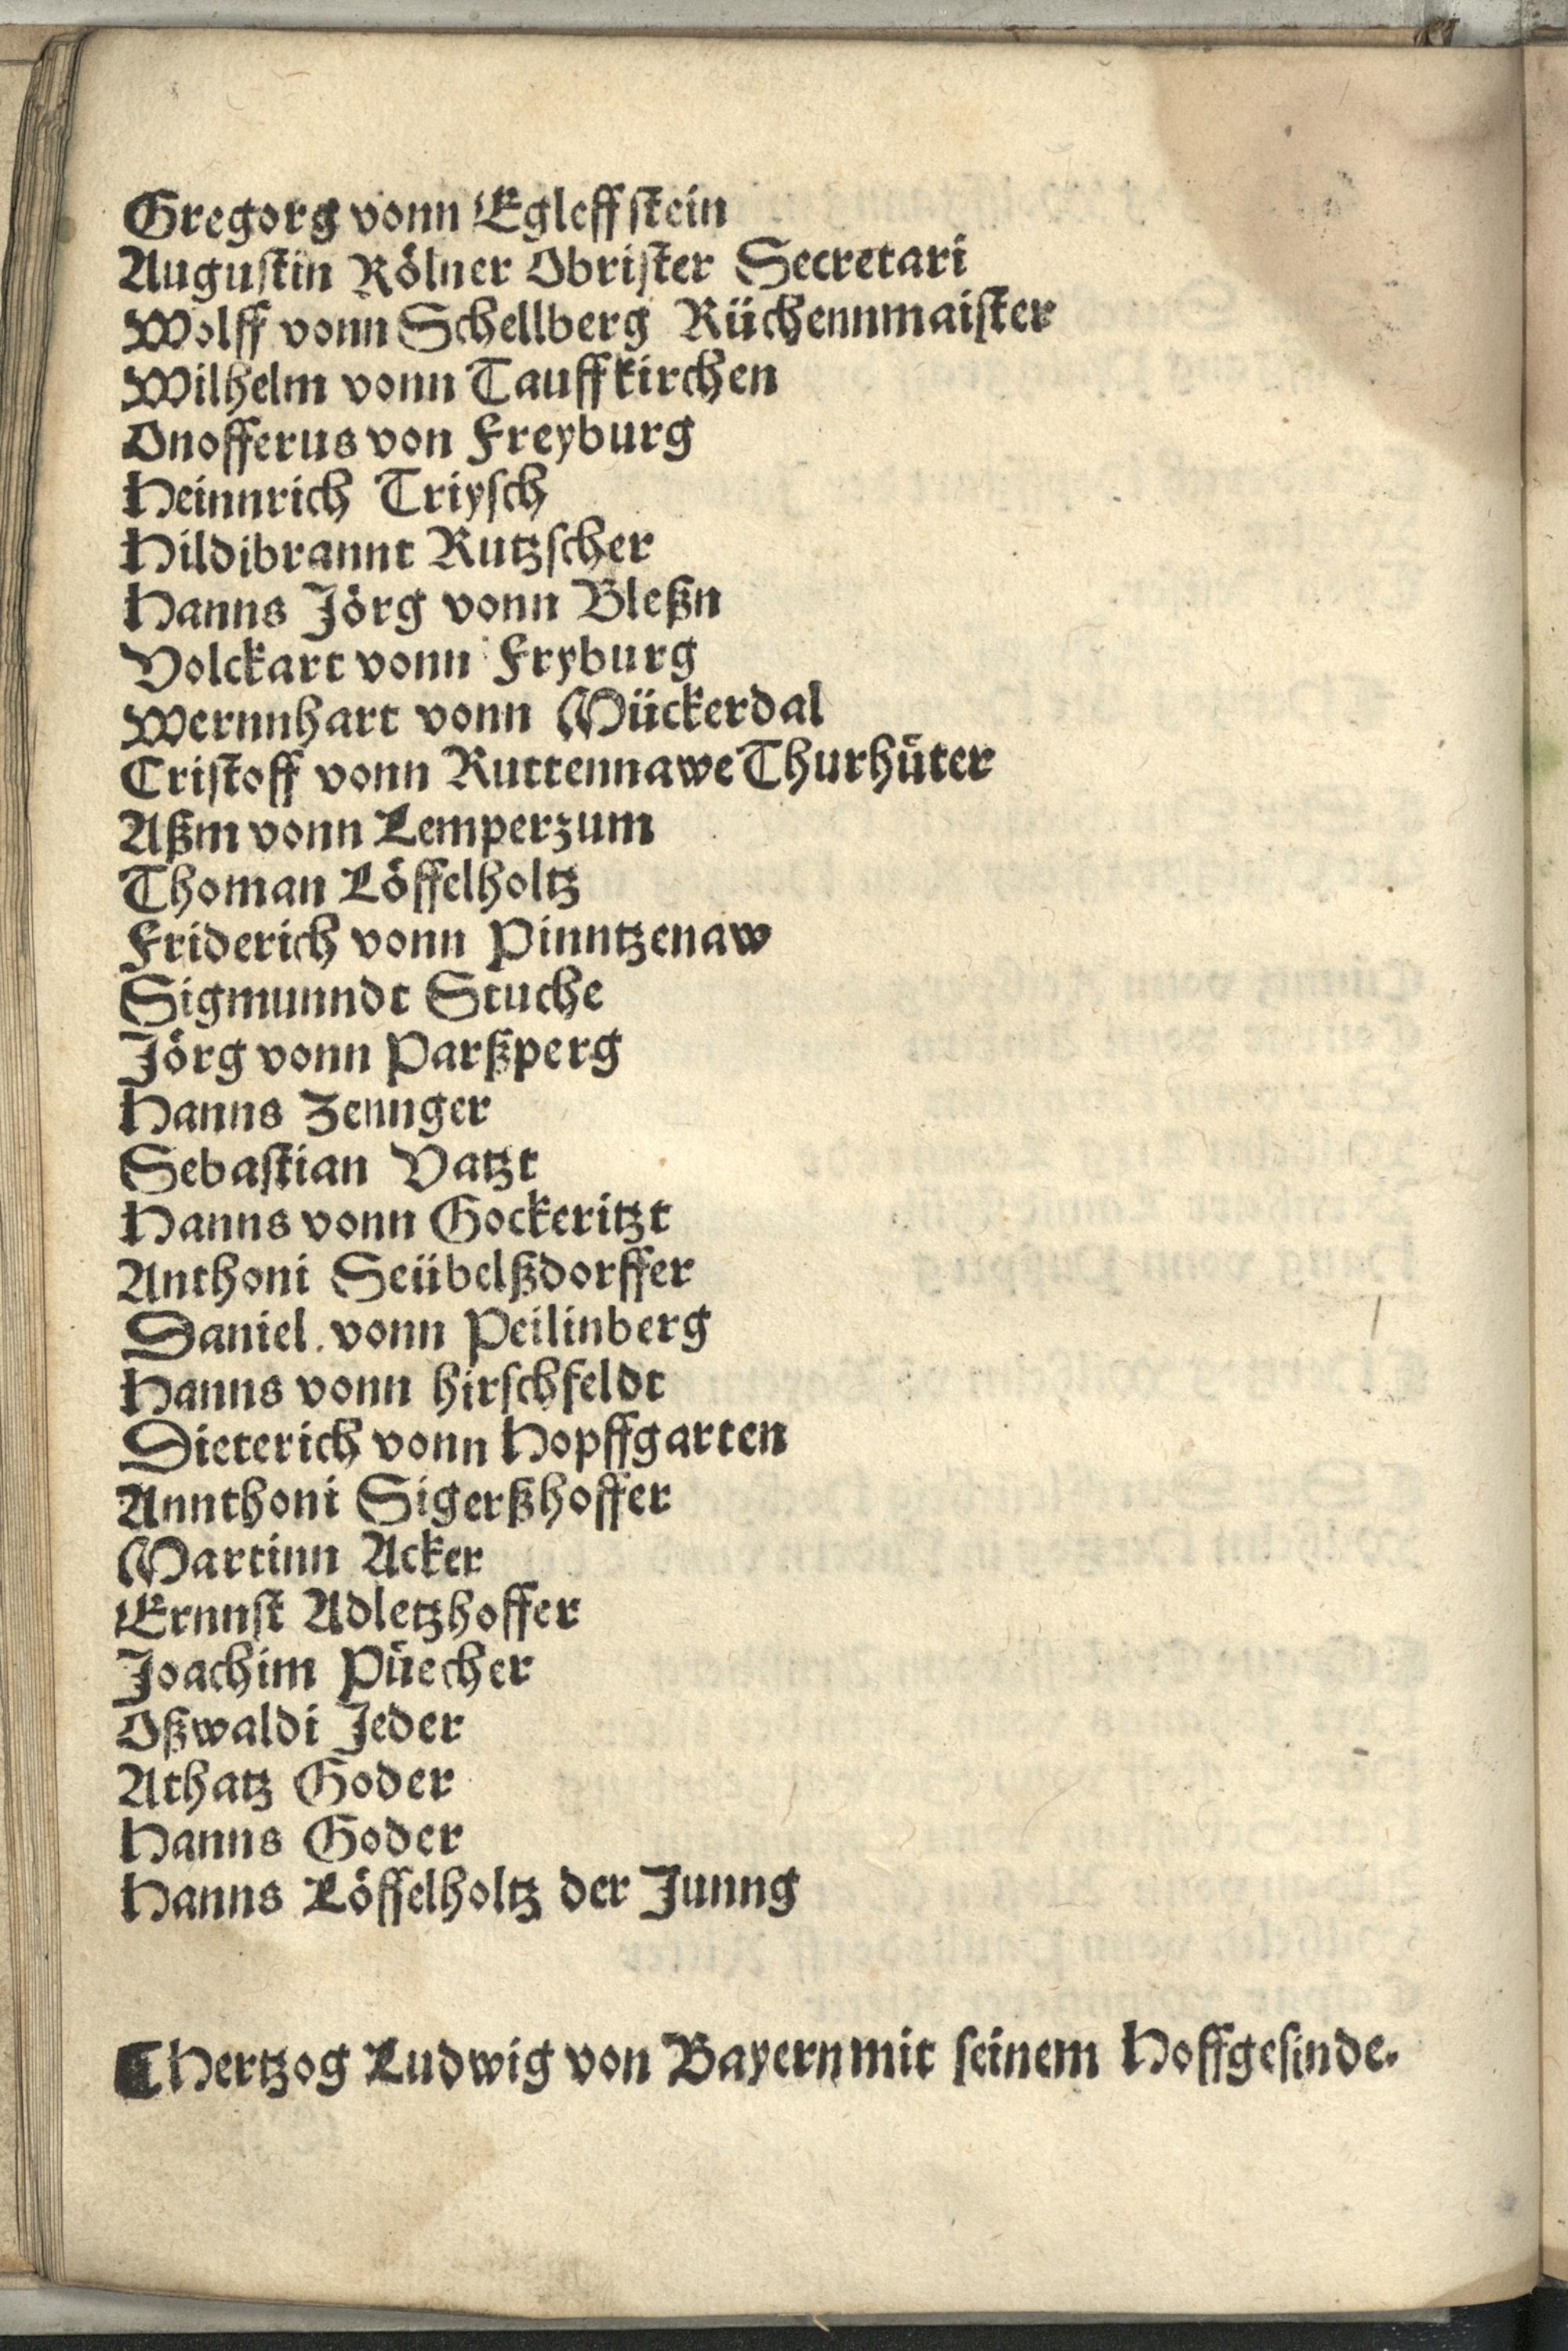 Gregorg vonn Egleffſtein
Auguſtin Kölner Obriſter Secretari
Wolff vonn Schellberg Küchennmaiſter
Wilhelm vonn Tauffkirchen
Onofferus von Freyburg
Heinnrich Triyſch
Hildibrannt Rutzſcher
Hanns Jörg vonn Bleßn
Volckart vonn Fryburg
Wernnhart vonn Mückerdal
Criſtoff vonn Ruttennawe Thurhüter
Aßm vonn Lemperzum
Thoman Löffelholtz
Friderich vonn Pinntzenaw
Sigmunndt Stuche
Jörg vonn Parßperg
Hanns Zennger
Sebaſtian Vatzt
Hanns vonn Gockeritzt
Anthoni Seübelßdorffer
Daniel. vonn Peilinberg
Hanns vonn hirſchfeldt
Dieterich vonn Hopffgarten
Annthoni Sigerßhoffer
Martinn Acker
Ernnſt Adletzhoffer
Joachim Püecher
Oßwaldi Jeder
Athatz Goder
Hanns Goder
Hanns Löffelholtz der Junng
¶ Hertzog Ludwig von Bayern mit ſeinem Hoffgeſinde.